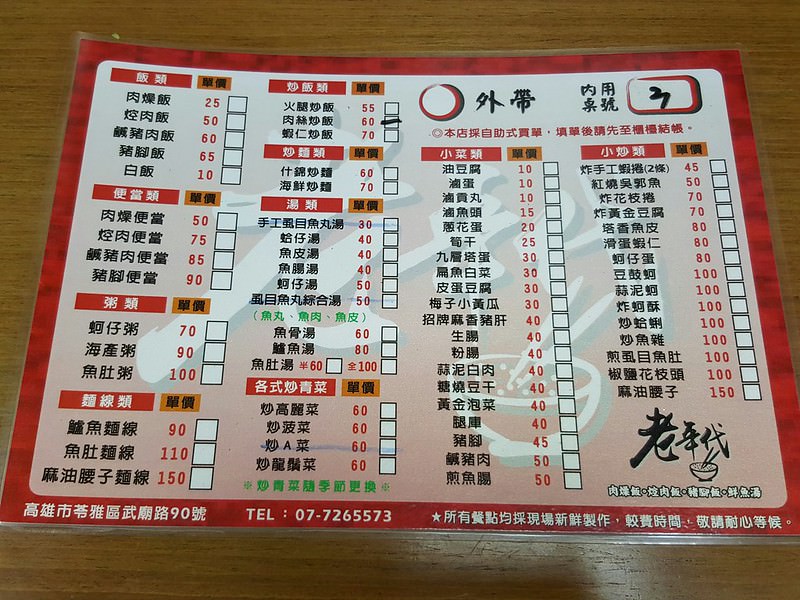 飯類 單價
肉燥飯 25
焢肉飯 50
鹹豬肉飯 60
豬腳飯 65
白飯 10
便當類 單價
肉燥便當 50
焢肉便當 75
鹹豬肉便當 85
豬腳便當 90
粥類 單價
蚵仔粥 70
海產粥 90
魚肚粥 100
麵線類 單價
鱸魚麵線 90
魚肚麵線 110
麻油腰子麵線 150
炒飯類 單價
火腿炒飯 55
肉絲炒飯 60
蝦仁炒飯 70
炒麵類 單價
什錦炒麵 60
海鮮炒麵 70
湯類 單價
手工虱目魚丸湯 30
蛤仔湯 40
魚皮湯 40
魚腸湯 40
蚵仔湯 50
虱目魚丸綜合湯 50
(魚丸、魚肉、魚皮)
魚骨湯 60
鱸魚湯 80
魚肚湯 半60 全100
各式炒青菜 單價
炒高麗菜 60
炒菠菜 60
炒A菜 60
炒龍鬚菜 60
※炒青菜隨季節更換※
外帶
內用桌號 3
◎本店採自助式買單，填單後請先至櫃檯結帳。
小菜類 單價
油豆腐 10
滷蛋 10
滷貢丸 10
滷魚頭 15
蔥花蛋 20
筍干 25
九層塔蛋 30
扁魚白菜 30
皮蛋豆腐 30
梅子小黃瓜 30
招牌麻香豬肝 40
生腸 40
粉腸 40
蒜泥白肉 40
糖燒豆干 40
黃金泡菜 40
腿庫 40
豬腳 45
鹹豬肉 50
煎魚腸 50
小炒類 單價
炸手工蝦捲(2條) 45
紅燒吳郭魚 50
炸花枝捲 70
炸黃金豆腐 70
塔香魚皮 80
滑蛋蝦仁 80
蚵仔蛋 80
豆鼓蚵 100
蒜泥蚵 100
炸蚵酥 100
炒蛤蜊 100
炒魚雜 100
煎虱目魚肚 100
椒鹽花枝頭 100
麻油腰子 150
老年代
肉燥飯•焢肉飯•豬腳飯•鮮魚湯
高雄市苓雅區武廟路90號 TEL：07-7265573
★所有餐點均採現場新鮮製作，較費時間，敬請耐心等候。